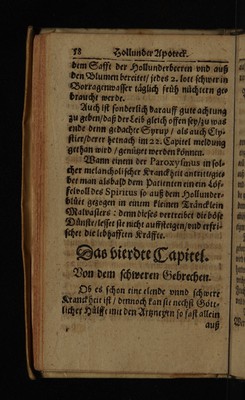 58 Hollunder Apoteck.
dem Safft der Hollunderbeeren und auß
den Blumen bereitet/ jedes 2. lott schwer in
Borragenwasser täglich früh nüchtern ge-
braucht werde.
Auch ist sonderlich darauff gute achtung
zu geben/ daß der Leib gleich offen sey/ zu was
ende denn gedachte Syrup/ als auch Cly-
stier/ derer hernach im 2. Capitel meldung
gethan wird/ genützet werden können.
Wann einem der Paroxysmus in sol-
cher melancholischer Kranckheit antrit/ gie-
bet man alsbald dem Patienten ein ein Löf-
felvoll des Spiritus so auß dem Hollunder-
blüt gezogen in einem kleinen Träncklein
Malvasiers: denn dieses vertreibet die böse
Dünste/ lesset sie nicht auffsteigen/ und erfri-
schet die lebhafften Kräffte.
Das vierdte Capitel.
Von dem schweren Gebrechen.
Ob es schon eine elende unnd schwere
Kranckheit ist/ dennoch kan sie nechst Gött-
licher Hülffe mit den Artzneyen so fast allein
auß